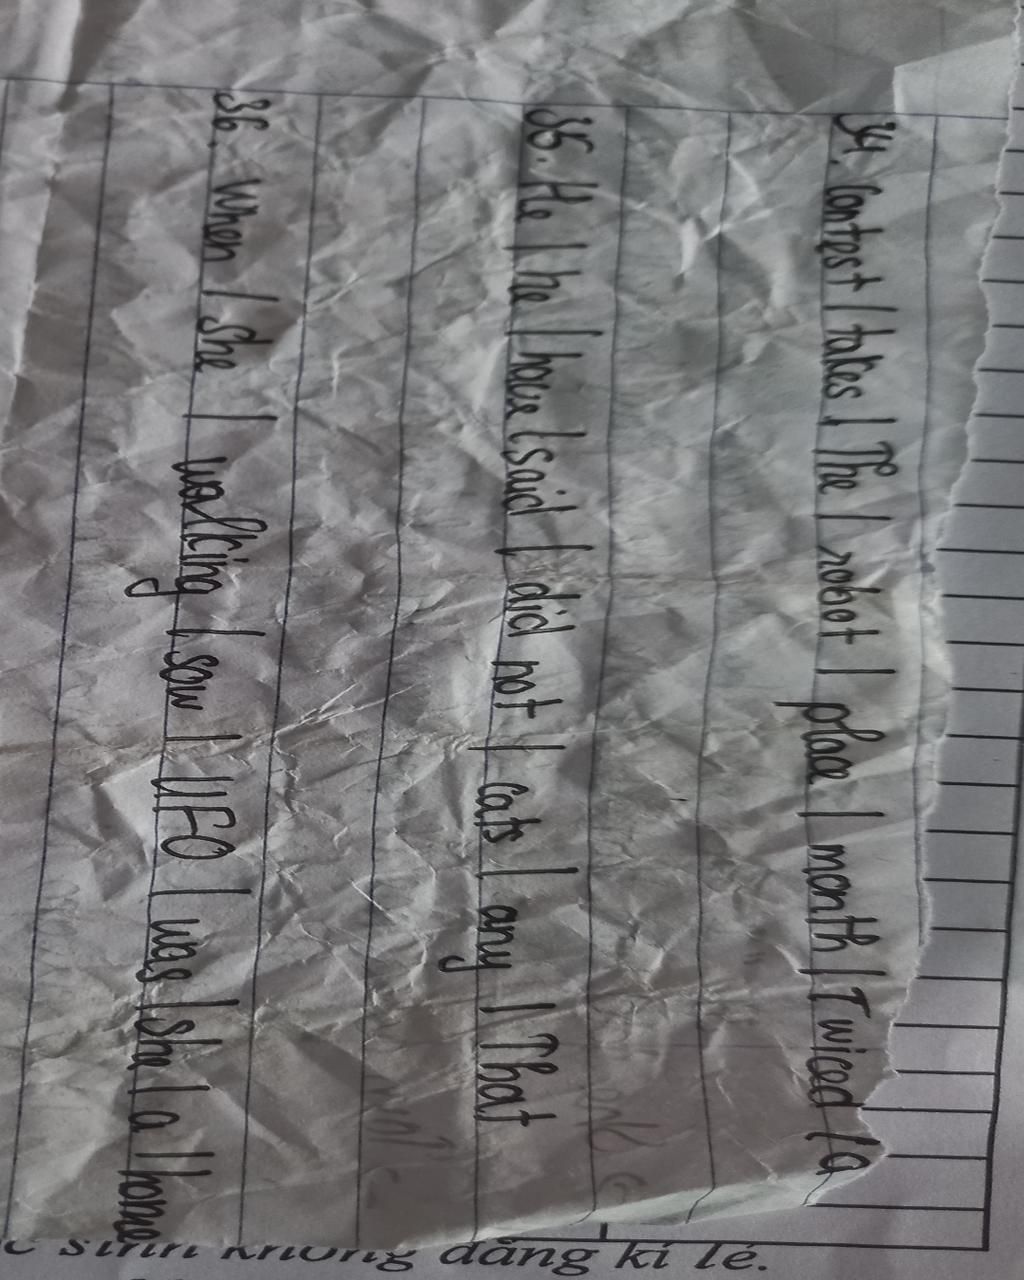 34. Contest / takes / The / robot / place / month / Twiced / a
35. He / he / have / said / did not / cats / any / That
36. When / She / walking / saw / UFO / was / she / a / home
sinh không đăng kí lẻ.